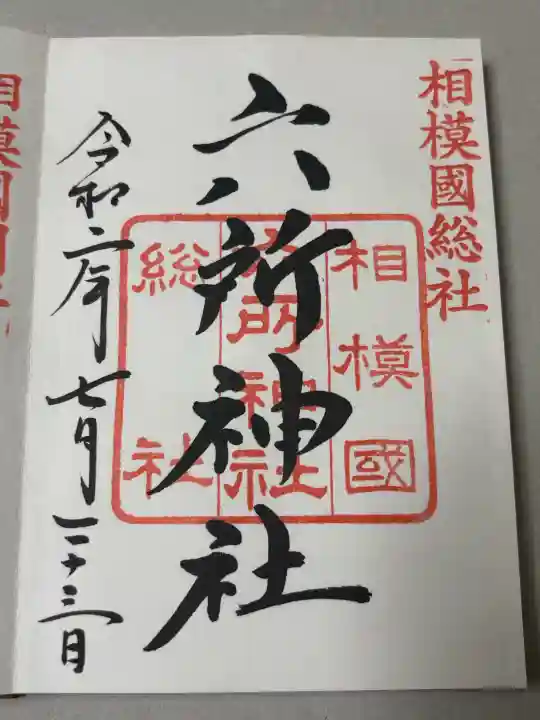 相模國総社
六所神社
相模國
六所神社
総社
令和二年七月二十三日